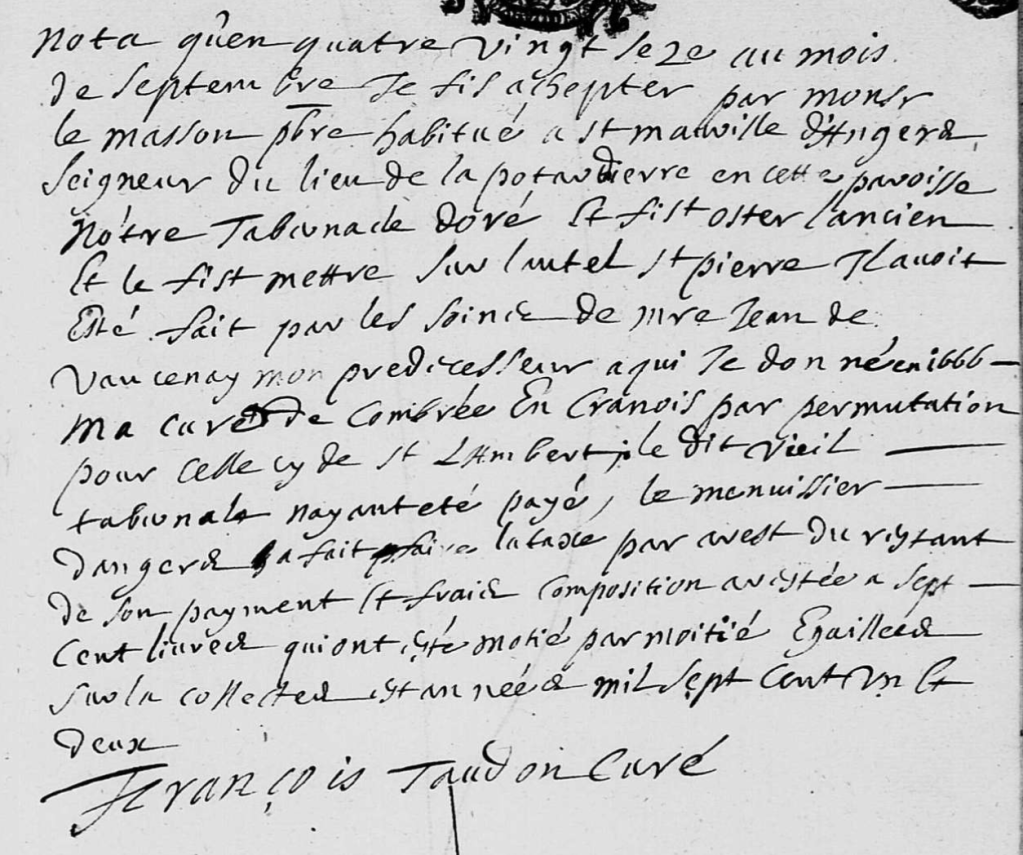 nota q'uen quatre vingt seze au mois
de septembre Je fis achepter par monsr
le masson pbre habitué a st mauville d'Angers
seigneur du lieu de la potardierre en cette paroisse
nôtre Tabernacle doré Et fist oster l'ancien
Et le fist mettre sur lautel st pierre Il avoit
Esté fait par les soins de mre Jean de
vaucenay mon predecesseur a qui Je donné en 1666
Ma cure de Combrée En Cranois par permutation
pour celle cy de st LAmbert le dit vieil
tabernale nayant eté payé, le menuissier
dangers a fait faire la taxe par arest du restant
de son payment Et frais composition arestée a sept
Cent livres qui ont esté motié par moitié Egaillées
sur la collectes et années mil sept Cent un Et
deux
François Taudon Curé